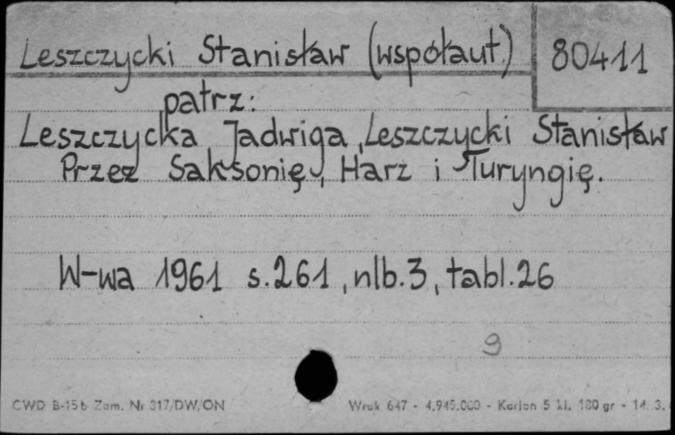 Leszczycki Stanisław (współaut) 80411
patrz:
Leszczycka Jadwiga, Leszczycki Stanisław
Przez Saksonię, Harz i Turyngię.
W-wa 1961 s.261, nlb.3, tabl.26
9
CWD B-15b Zam. Nr 317/DW/ON Wrak 647 - 4.945.000 - Karton 5 kl. 180 gr - 14. 3.